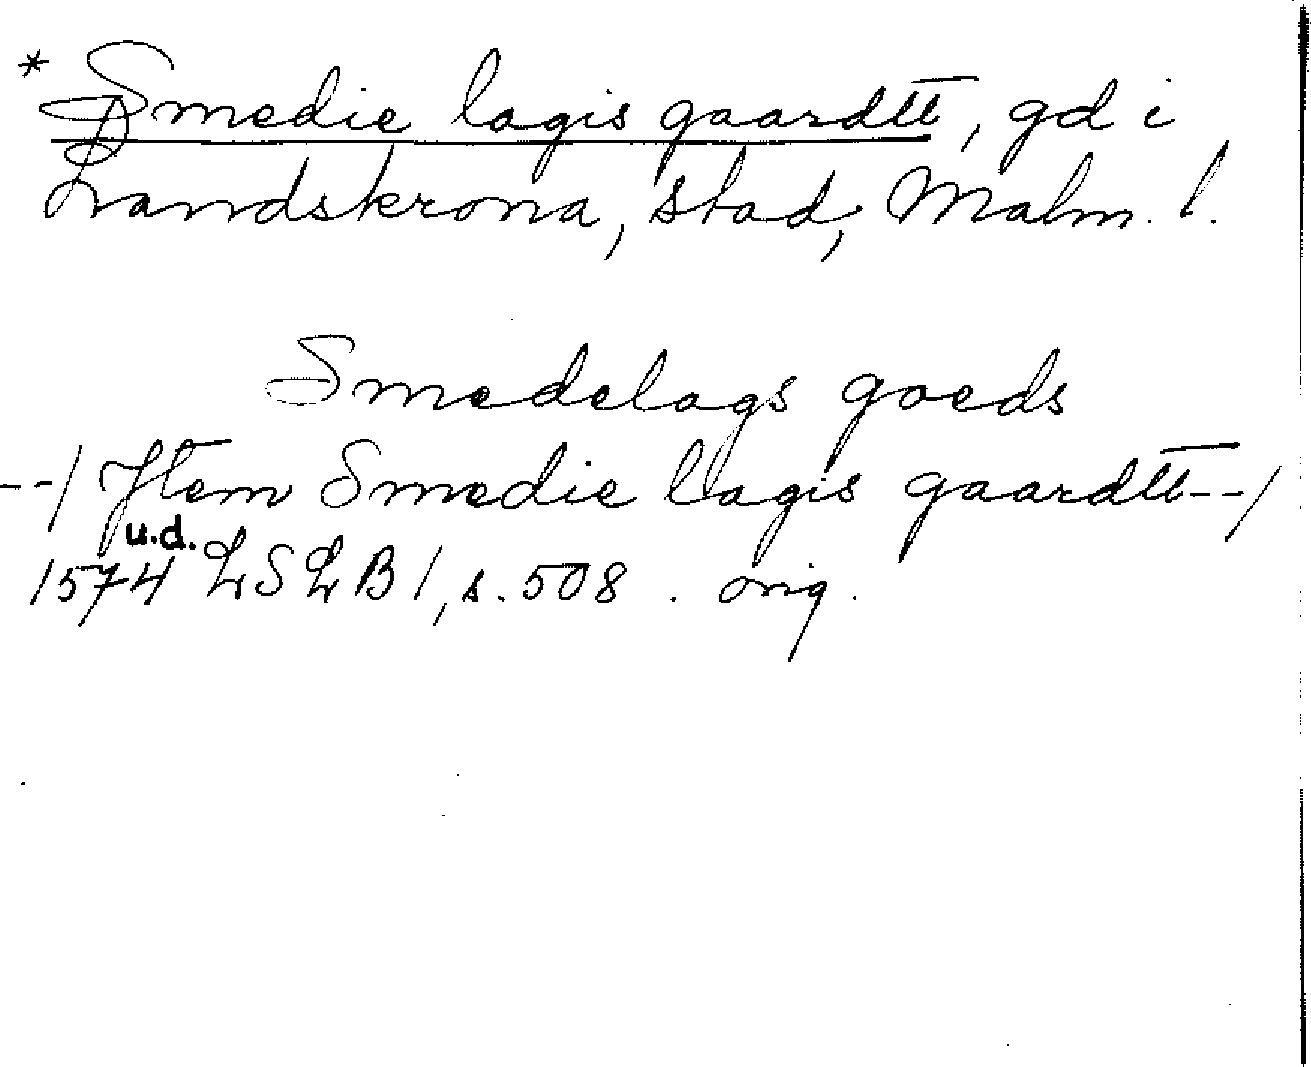 * Smedie lagis gaardtt, gd i
Landskrona, stad, Malm. l.
Smedelags goeds
--/ Jtem Smedie lagis gaardtt--/
u.d.
1574 LSLB 1, s. 508 . orig.